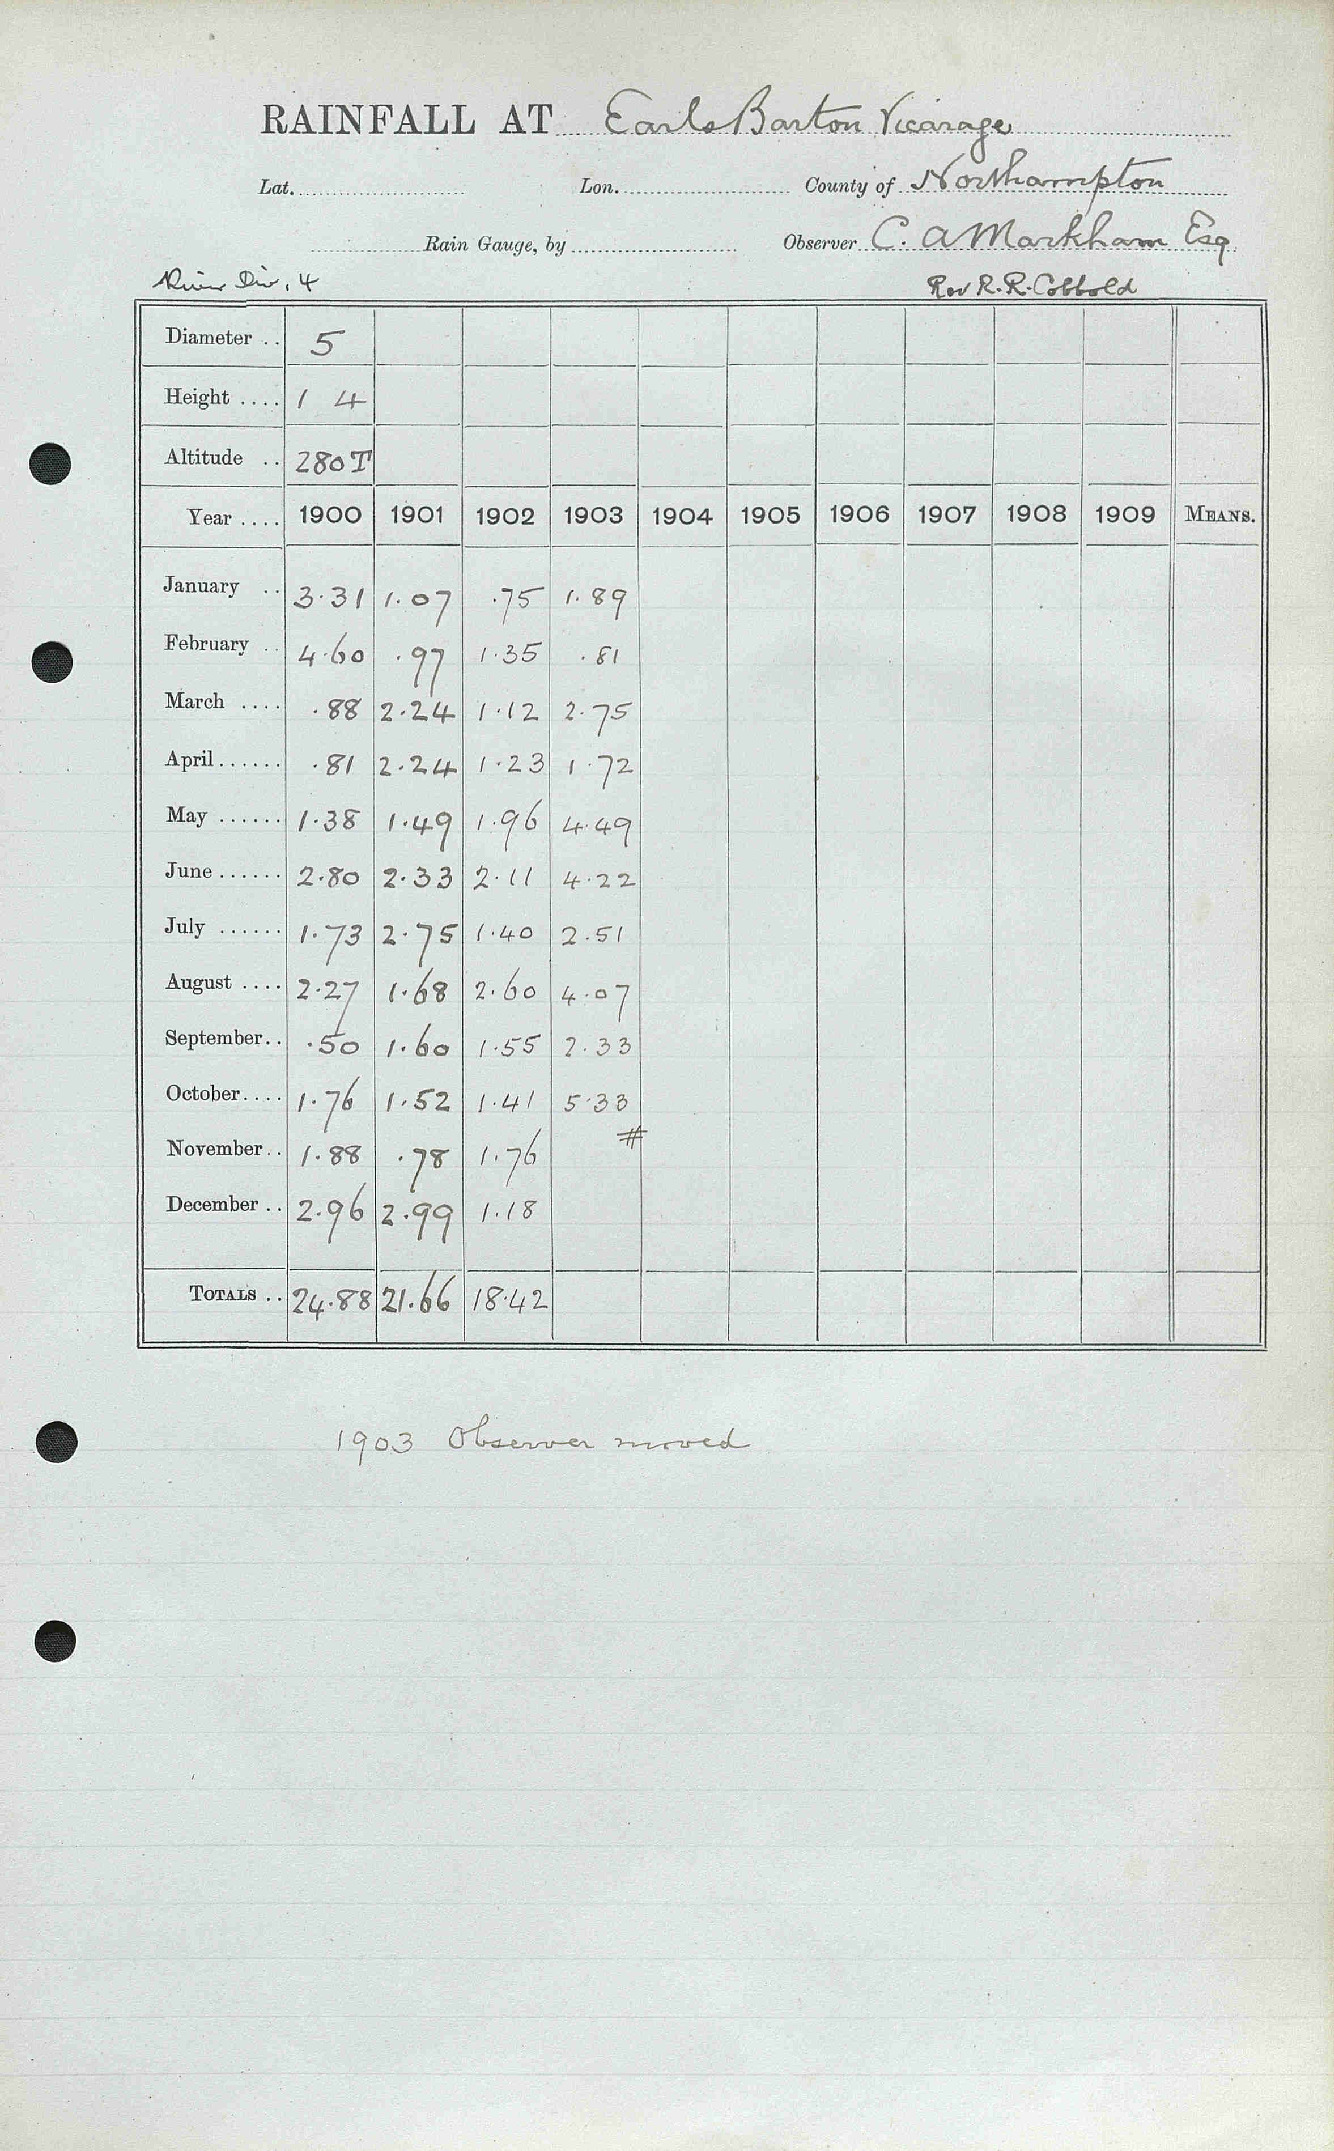 RAINFALL AT Earls Barton Vicarage
Lat. Lon. County of Northampton
Rain Gauge, by Observer C. A Markham Esq
River Div. 4 Rev R. R. Cobbold
Diameter .. 5
Height .... 1 4
Altitude .. 280T
Year .... 1900 1901 1902 1903 1904 1905 1906 1907 1908 1909 MEANS.
January .. 3.31 1.07 .75 1.89
February .. 4.60 .97 1.35 .81
March .... .88 2.24 1.12 2.75
April ...... .81 2.24 1.23 1.72
May ...... 1.38 1.49 1.96 4.49
June ...... 2.80 2.33 2.11 4.22
July ...... 1.73 2.75 1.40 2.51
August .... 2.27 1.68 2.60 4.07
September .. .50 1.60 1.55 2.33
October .... 1.76 1.52 1.41 5.33
November .. 1.88 .78 1.76 #
December .. 2.96 2.99 1.18
TOTALS .. 24.88 21.66 18.42
1903 Observer moved